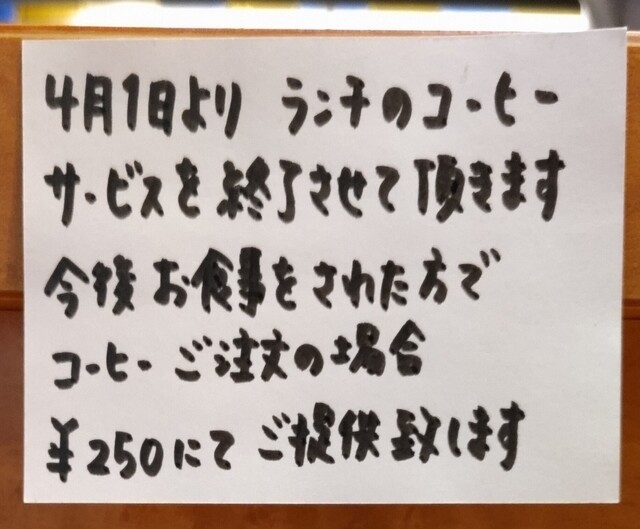 4月1日より ランチのコーヒー
サービスを終了させて頂きます
今後お食事をされた方で
コーヒーご注文の場合
¥250にてご提供致します